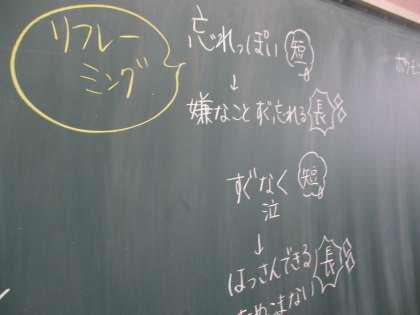 リフレー
ミング
忘れっぽい 短
↓
嫌なことすぐ忘れる 長
すぐなく 短
泣
↓
はっさんできる 長
ためこまない